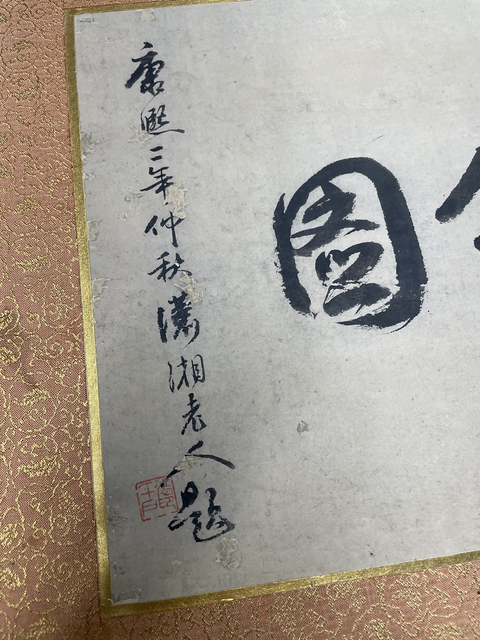 圖
康熙二年仲秋瀟湘老人題